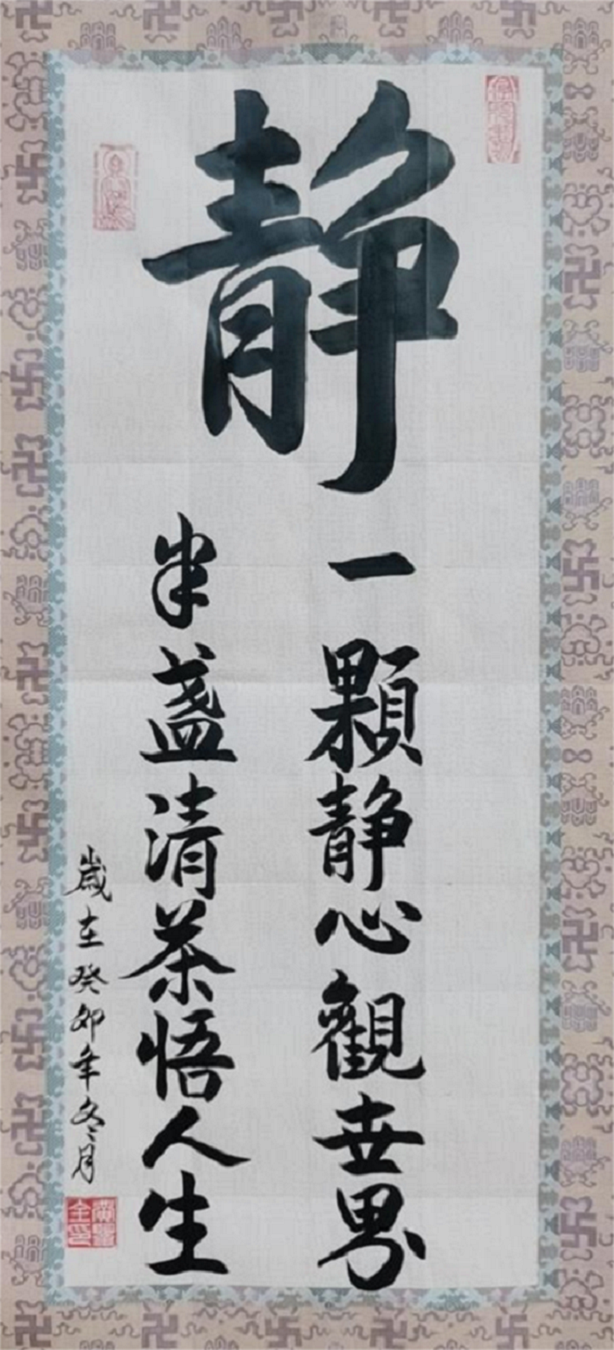 静
一顆静心觀世界
半盞清茶悟人生
歲在癸卯年冬月